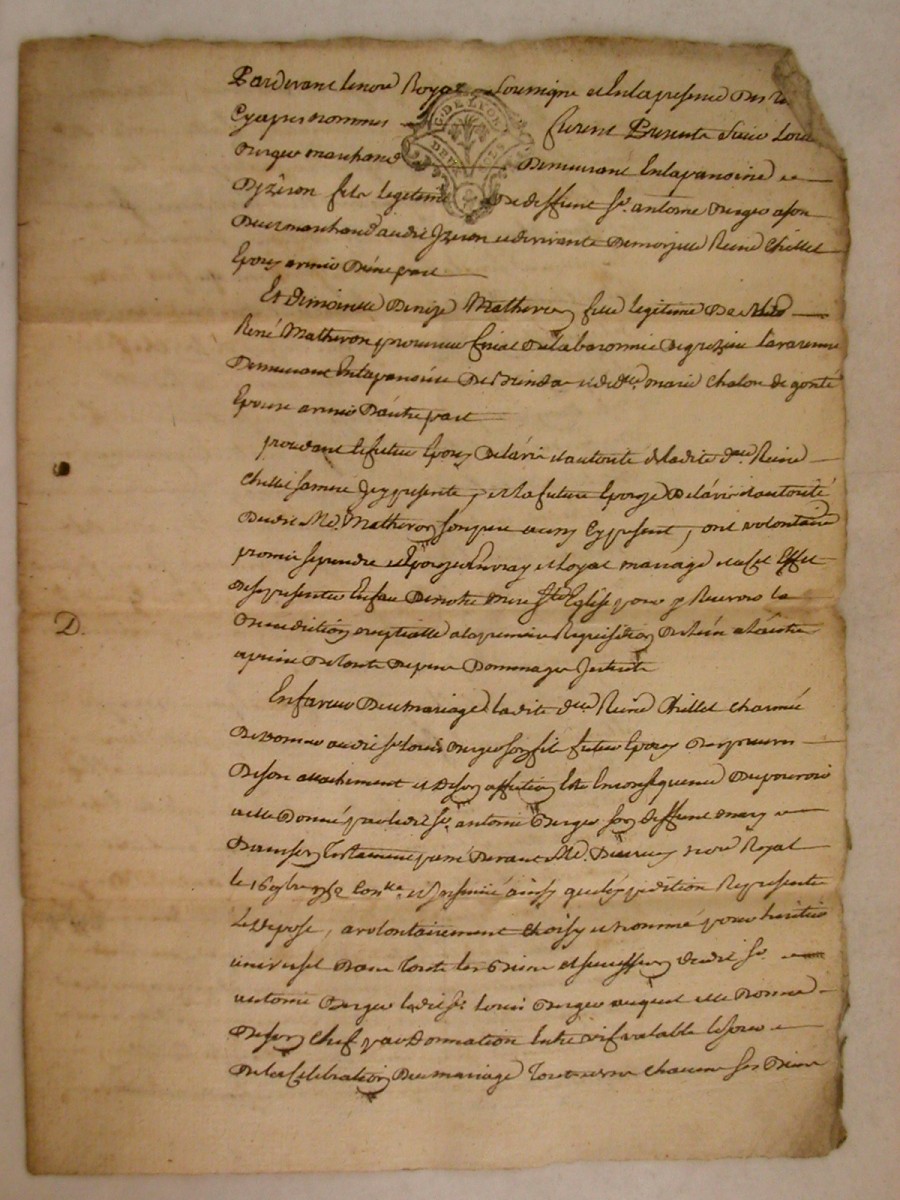 Pardevant le no.re Royal soussigne et en la presence des te
Cyapres nommes furent Presents Sieur Louis
Berger marchand demeurant en la paroisse
D'yzeron fils legitime de deffunt Sr. antoine Berger a son
vivant marchand audit Yzeron et de vivante demoizelle Reine Chillet
Epoux avenir d'une part
Et demoiselle Denize Matheron fille legitime de Me
René Matheron procureur fiscal de la baronnie de grezieu Lavarenne
Demeurant en la paroisse de et de d.lle marie Chalon de gonté
Epouse avenir d'autre part
procedant le futur Epoux de l'avis et autorité de ladite d.lle Reine
Chillet sa mere Icy presente, et la future Epouze de l'avis et autorité
dudit Me. Matheron son pere aussy Cy present, ont volontairem
promis se prendre et Epouzer en vray et Loyal mariage et a cet Effet
de se presenter en face de notre mere Ste Eglise pour y Recevoir la
Benediction nuptialle a la premiere Requisition de l'un et l'autre
a peine de tous depens dommages Interets
En faveur du mariage ladite d.lle Reine Chillet charmée
de donner audit Sr Louis Berger son fils futur Epoux des preuves
de son attachement et de son affection Et en consequence du pouvoir
a elle donné par ledit Sr. antoine Berger son deffunt mary
Dans son Testament passé devant Me. no.re Royal
le 16 8bre
depose, a volontairement choisy et nommé pour heritier
universel dans tous les Biens et succession dudit Sr.
antoine Berger ledit Sr. Louis Berger auquel elle donne
de son Chef par donnation entre vifs valable le jour
de la Celebration du mariage tous et un chacuns ses Biens
D.
G. DE LYON